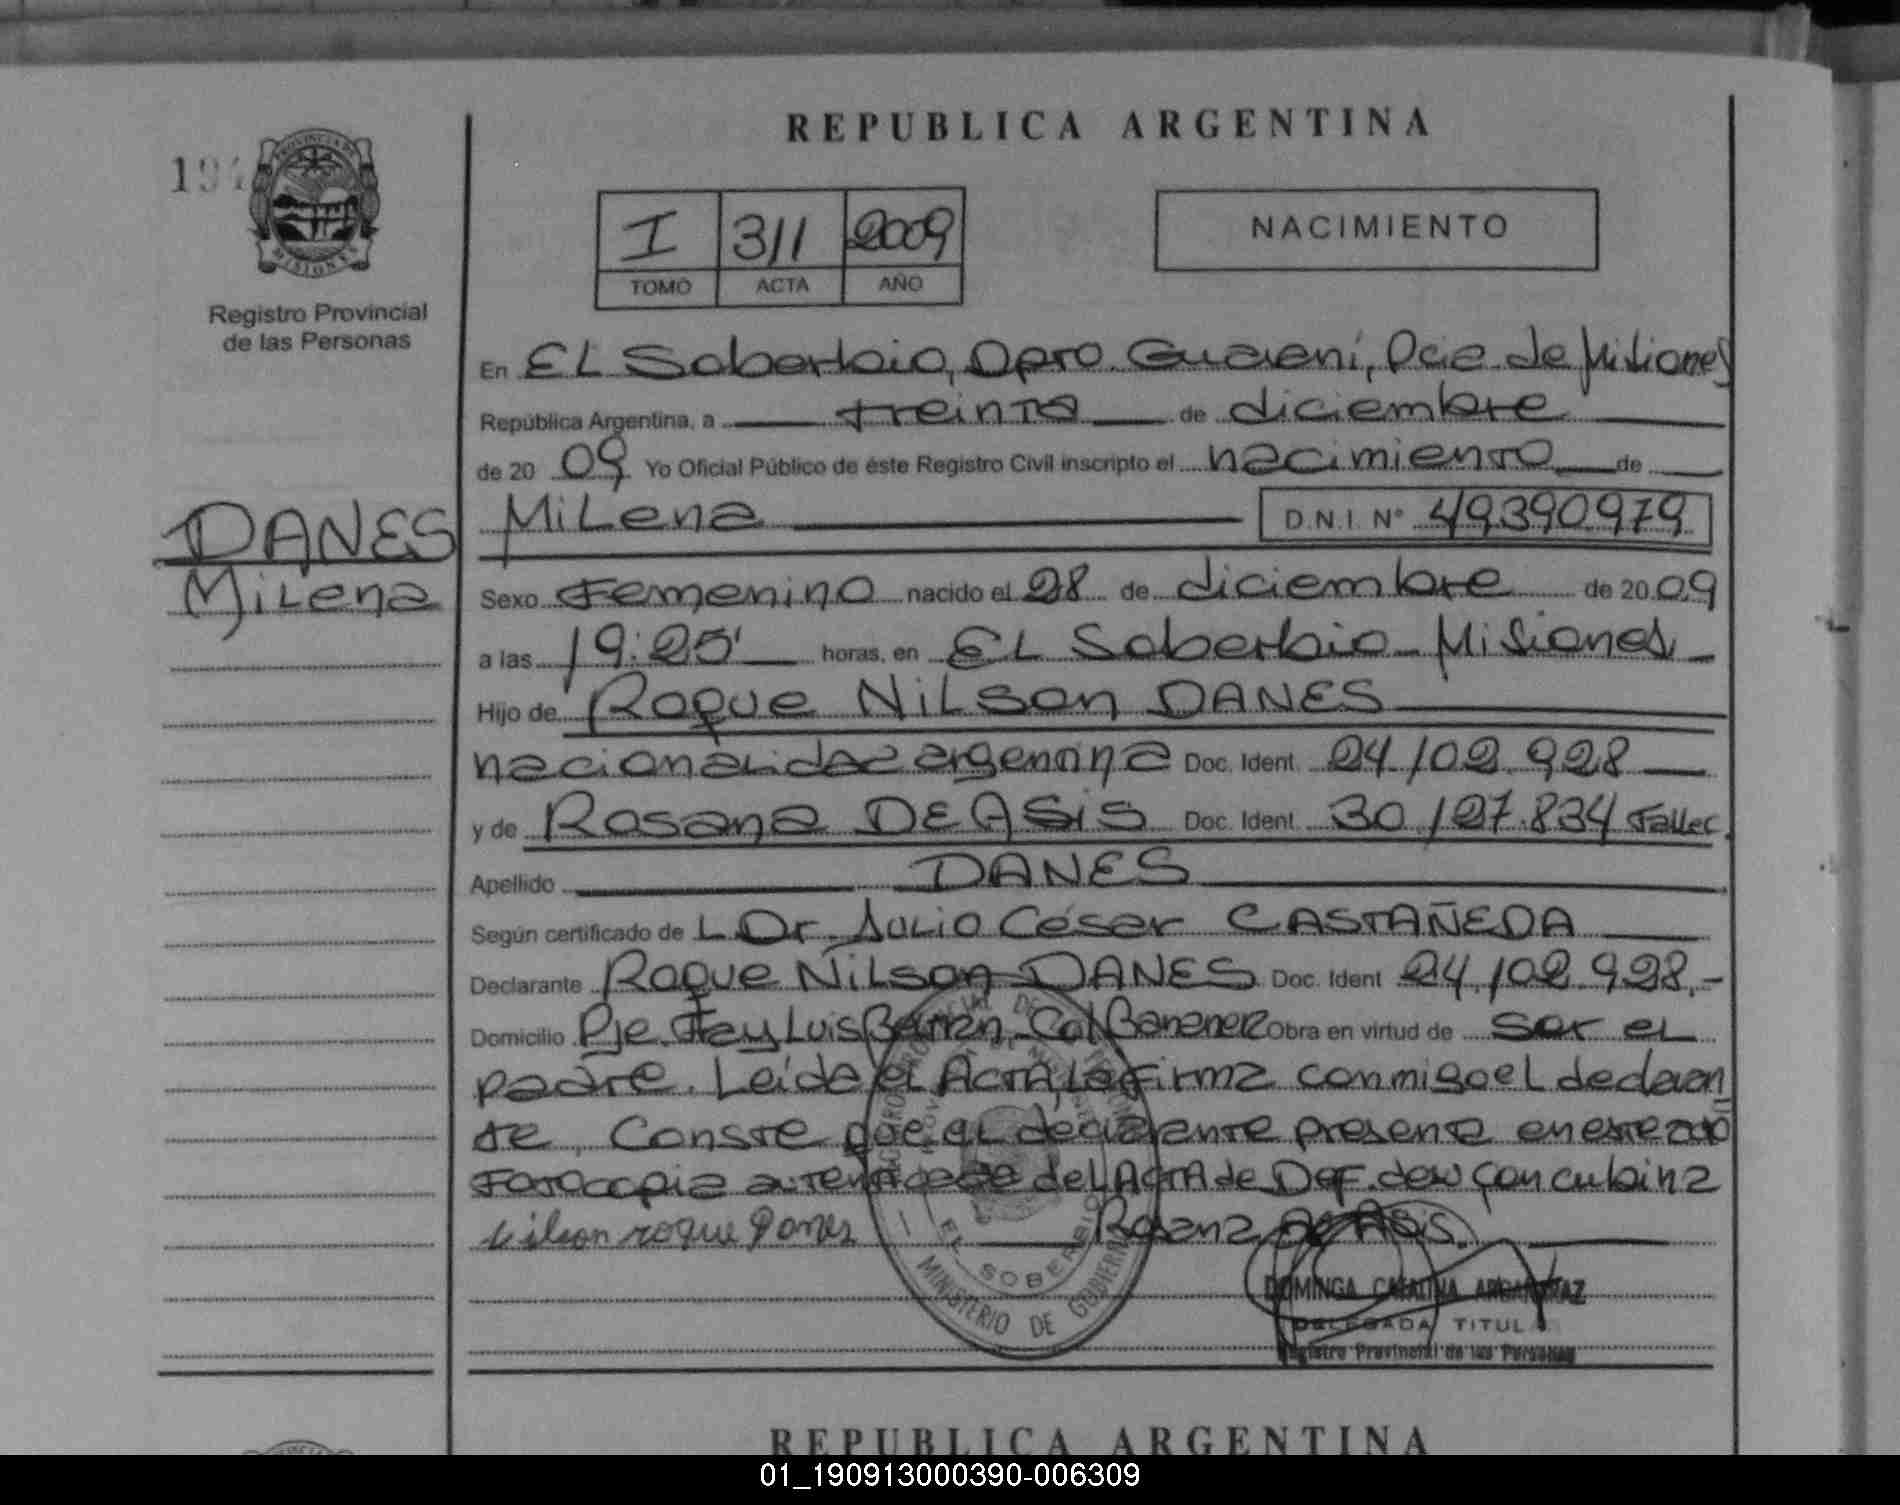 REPUBLICA ARGENTINA
194
PROVINCIA DE
MISIONES
Registro Provincial
de las Personas
I 311 2009
TOMO ACTA AÑO
NACIMIENTO
En EL Soberbio, Dpto. Guaraní, Pcia. de Misiones
República Argentina, a treinta de diciembre
de 20 09 Yo Oficial Público de éste Registro Civil inscripto el nacimiento de
Milena D.N.I. Nº 49390979
DANES
Milena
Sexo Femenino nacido el 28 de diciembre de 20 09
a las 19:25' horas, en EL Soberbio - Misiones
Hijo de Roque Nilson DANES
nacionalidad argentina Doc. Ident. 24.102.928
y de Rosana DE ASIS Doc. Ident. 30.127.834 Fallec.
Apellido DANES
Según certificado de L Dr. Julio César CASTAÑEDA
Declarante Roque Nilson DANES Doc. Ident 24.102.928.-
Domicilio Pje. Fray Luis Beltrán, Col Obra en virtud de ser el
padre. Leída el Acta, la firma conmigo el declaran
te. Conste que el declarante presenta en este acto
Fotocopia autenticada del Acta de Def. de su concubina
Rosana de Asis.
Nilson roque Danes
EL SOBERBIO
MINISTERIO DE GOBIERNO
DOMINGA CATALINA
DELEGADA TITULAR
Registro Provincial de las Personas
REPUBLICA ARGENTINA
01_190913000390-006309